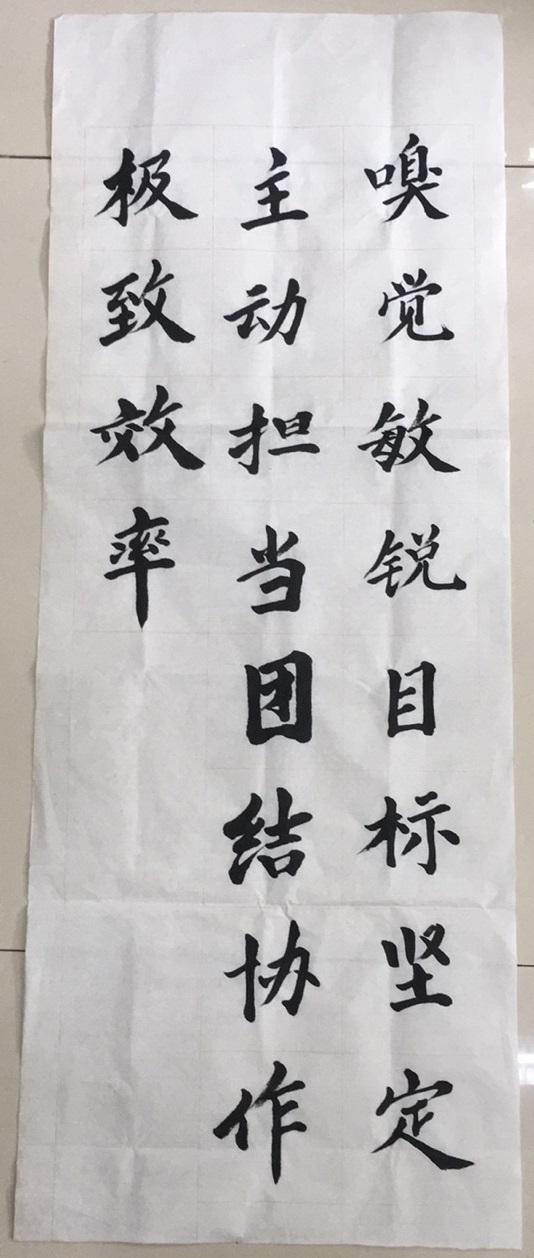 嗅觉敏锐目标坚定
主动担当团结协作
极致效率